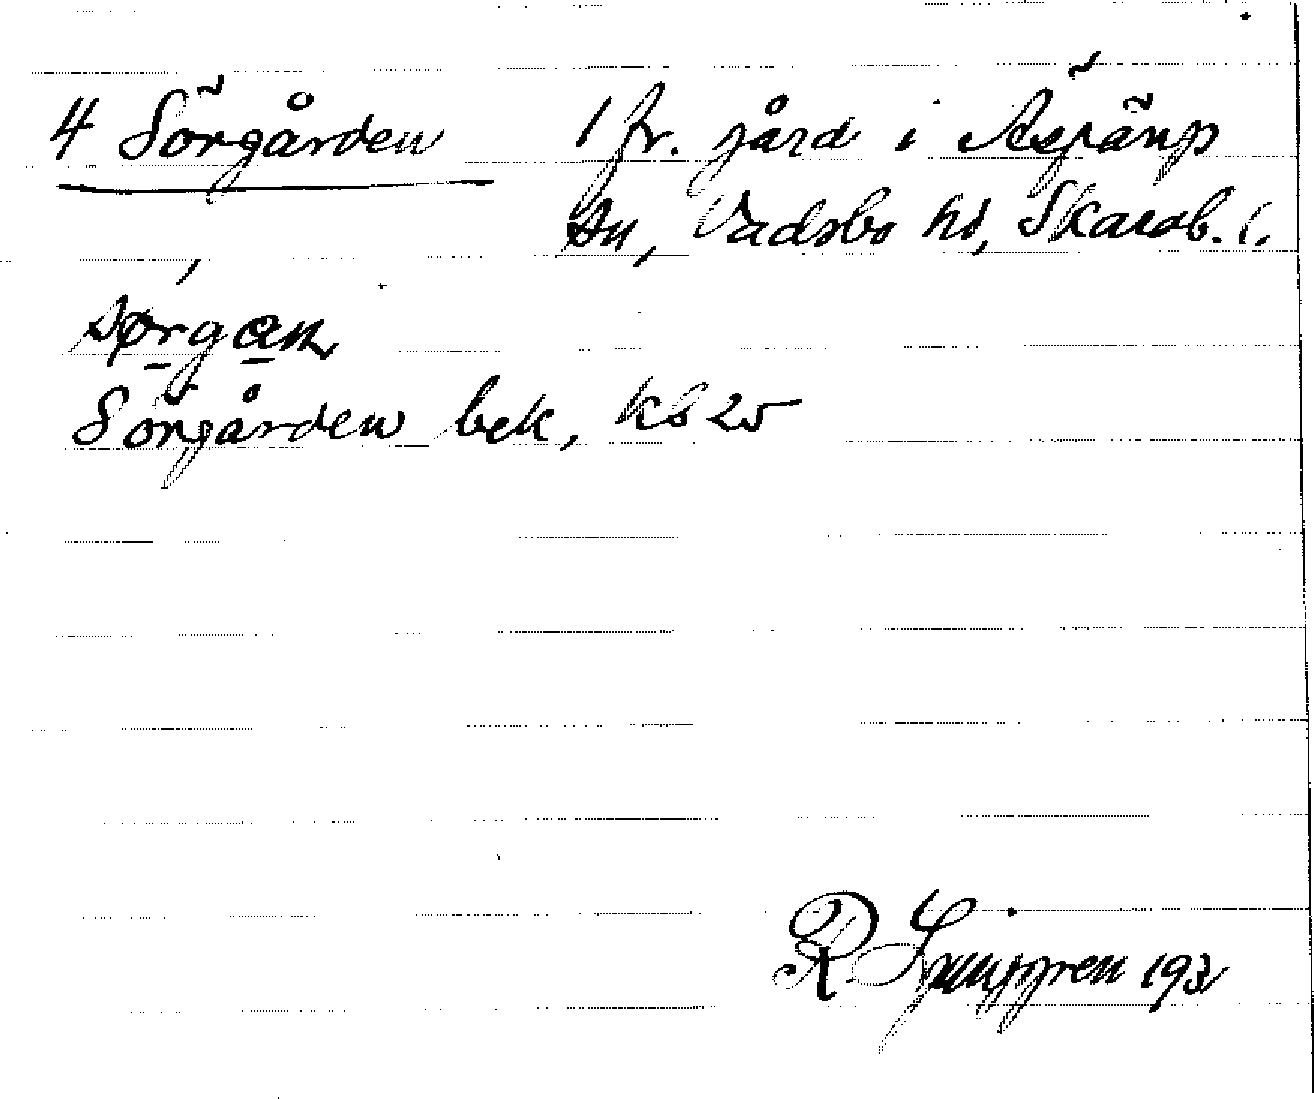 4 Sörgården 1 fr. gård i Äspänp
sn, Vadsbo hd, Skarab. l.
sørgan
Sörgården bek, kb 25
R. Ljunggren 193